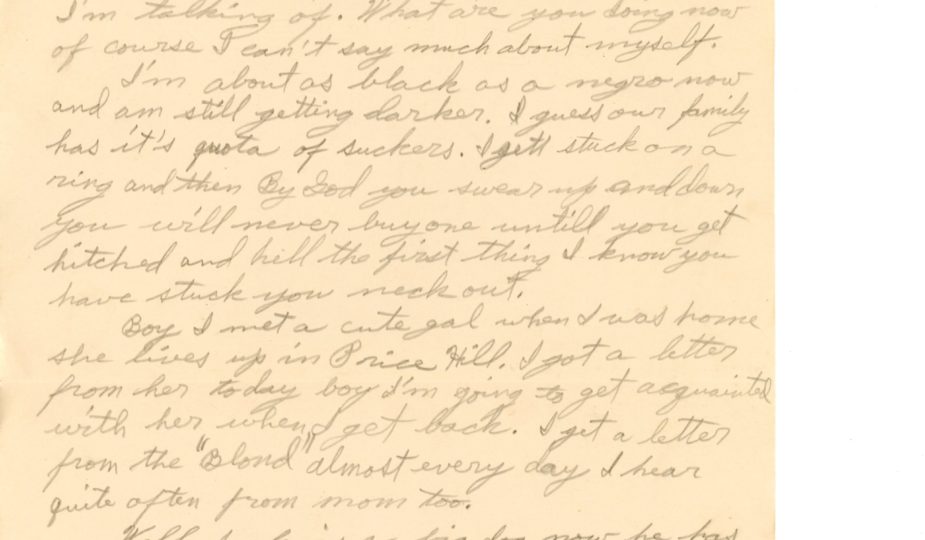 I'm talking of. What are you doing now
of course I can't say much about myself.
I'm about as black as a negro now
and am still getting darker. I guess our family
has it's quota of suckers. I gett stuck on a
ring and then By God you swear up and down
you will never buy one untill you get
hitched and hell the first thing I know you
have stuck you neck out.
Boy I met a cute gal when I was home
she lives up in Price Hill. I got a letter
from her today boy I'm going to get acquainted
with her when I get back. I get a letter
from the "Blond" almost every day I hear
quite often from mom too.
Well he is a big dog now he has